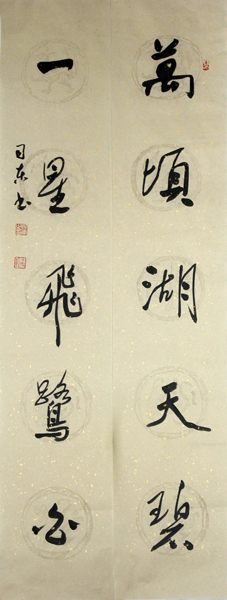 萬頃湖天碧
一星飛鷺白
司東书